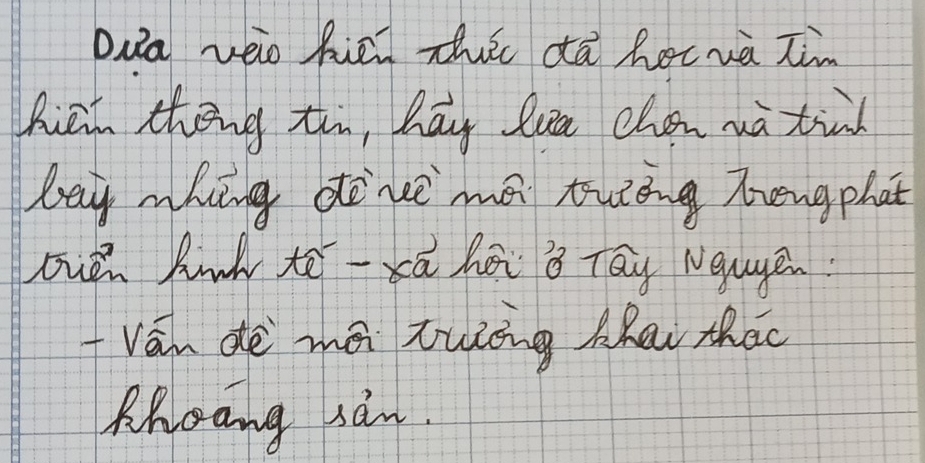 Dựa vào kiến thức đã học và tìm
kiếm thông tin, hãy lựa chọn và trình
bày những đề về môi trường trong phát
triển kinh tế - xã hội ở Tây Nguyên :
- Vấn đề môi trường khai thác
khoáng sản.